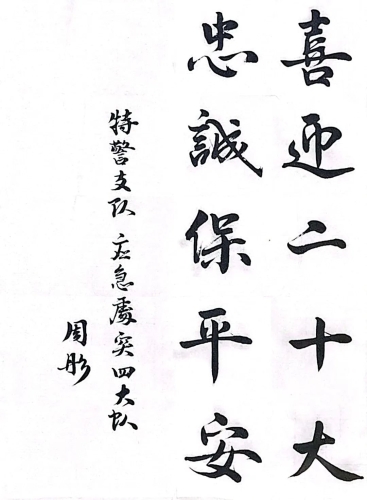 喜迎二十大
忠誠保平安
特警支队应急處突四大队
周彤